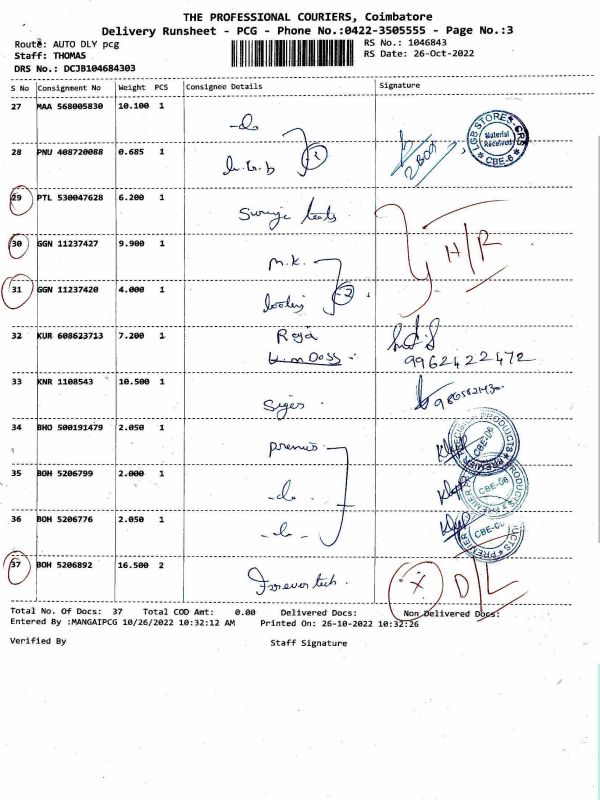 THE PROFESSIONAL COURIERS, Coimbatore
Delivery Runsheet - PCG - Phone No.:0422-3505555 - Page No.:3
Route: AUTO DLY pcg
RS No.: 1046843
Staff: THOMAS
RS Date: 26-Oct-2022
DRS No.: DCJB104684303
S No Consignment No Weight PCS Consignee Details Signature
27 MAA 568005830 10.100 1
LGB STORES-CRS Material Received CBE-6
28 PNU 408720088 0.685 1
L.G.b
29 PTL 530047628 6.200 1
H/R
30 GGN 11237427 9.900 1
M.K.
31 GGN 11237420 4.000 1
32 KUR 608623713 7.200 1
Roja
DOSS
9962422472
33 KNR 1108543 10.500 1
34 BHO 500191479 2.050 1
premier
PREMIER PRODUCTS CBE-06
35 BOH 5206799 2.000 1
-do-
PREMIER PRODUCTS CBE-06
36 BOH 5206776 2.050 1
-do-
PREMIER PRODUCTS
37 BOH 5206892 16.500 2
Forever tech.
X D/L
Total No. Of Docs: 37 Total COD Amt: 0.00 Delivered Docs: Non Delivered Docs:
Entered By :MANGAIPCG 10/26/2022 10:32:12 AM Printed On: 26-10-2022 10:32:26
Verified By Staff Signature